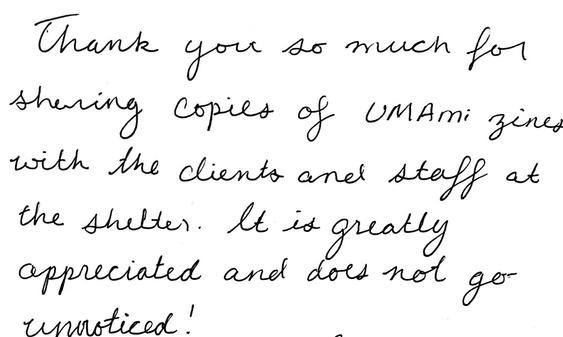 Thank you so much for
sharing copies of UMAmi zines
with the clients and staff at
the shelter. It is greatly
appreciated and does not go
unnoticed!